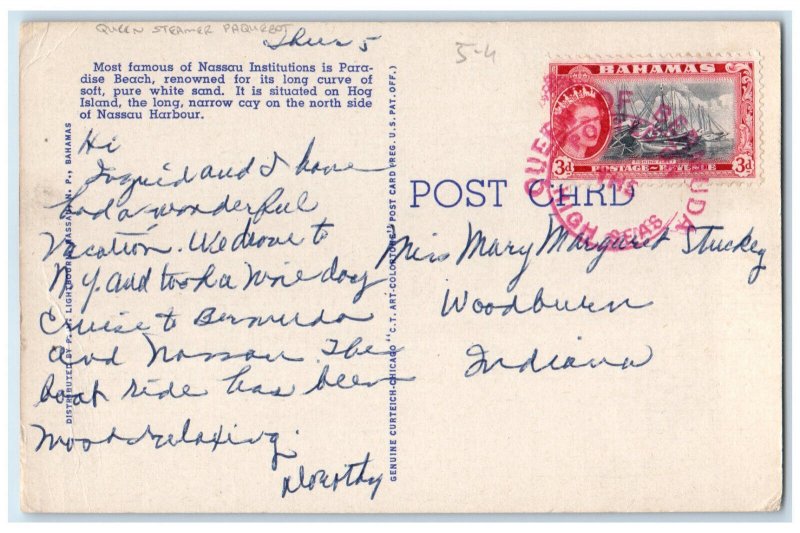 QUEEN STEAMER PAQUEBOT
Thurs 5
5-4
Most famous of Nassau Institutions is Para-
dise Beach, renowned for its long curve of
soft, pure white sand. It is situated on Hog
Island, the long, narrow cay on the north side
of Nassau Harbour.
Hi
Ingrid and I have
had a wonderful
vacation. We drove to
N.Y. and took a nine day
Cruise to Bermuda
and Nassau. The
boat ride has been
most relaxing.
Dorothy
DISTRIBUTED BY NASSAU, N. P., BAHAMAS
GENUINE CURTEICH-CHICAGO "C.T. ART-COLORTONE" POST CARD (REG. U.S. PAT. OFF.)
POST CARD
BAHAMAS
3d 3d
POSTAGE & REVENUE
QUEEN OF BERMUDA
HIGH SEAS
Miss Mary Margaret Stuckey
Woodburn
Indiana